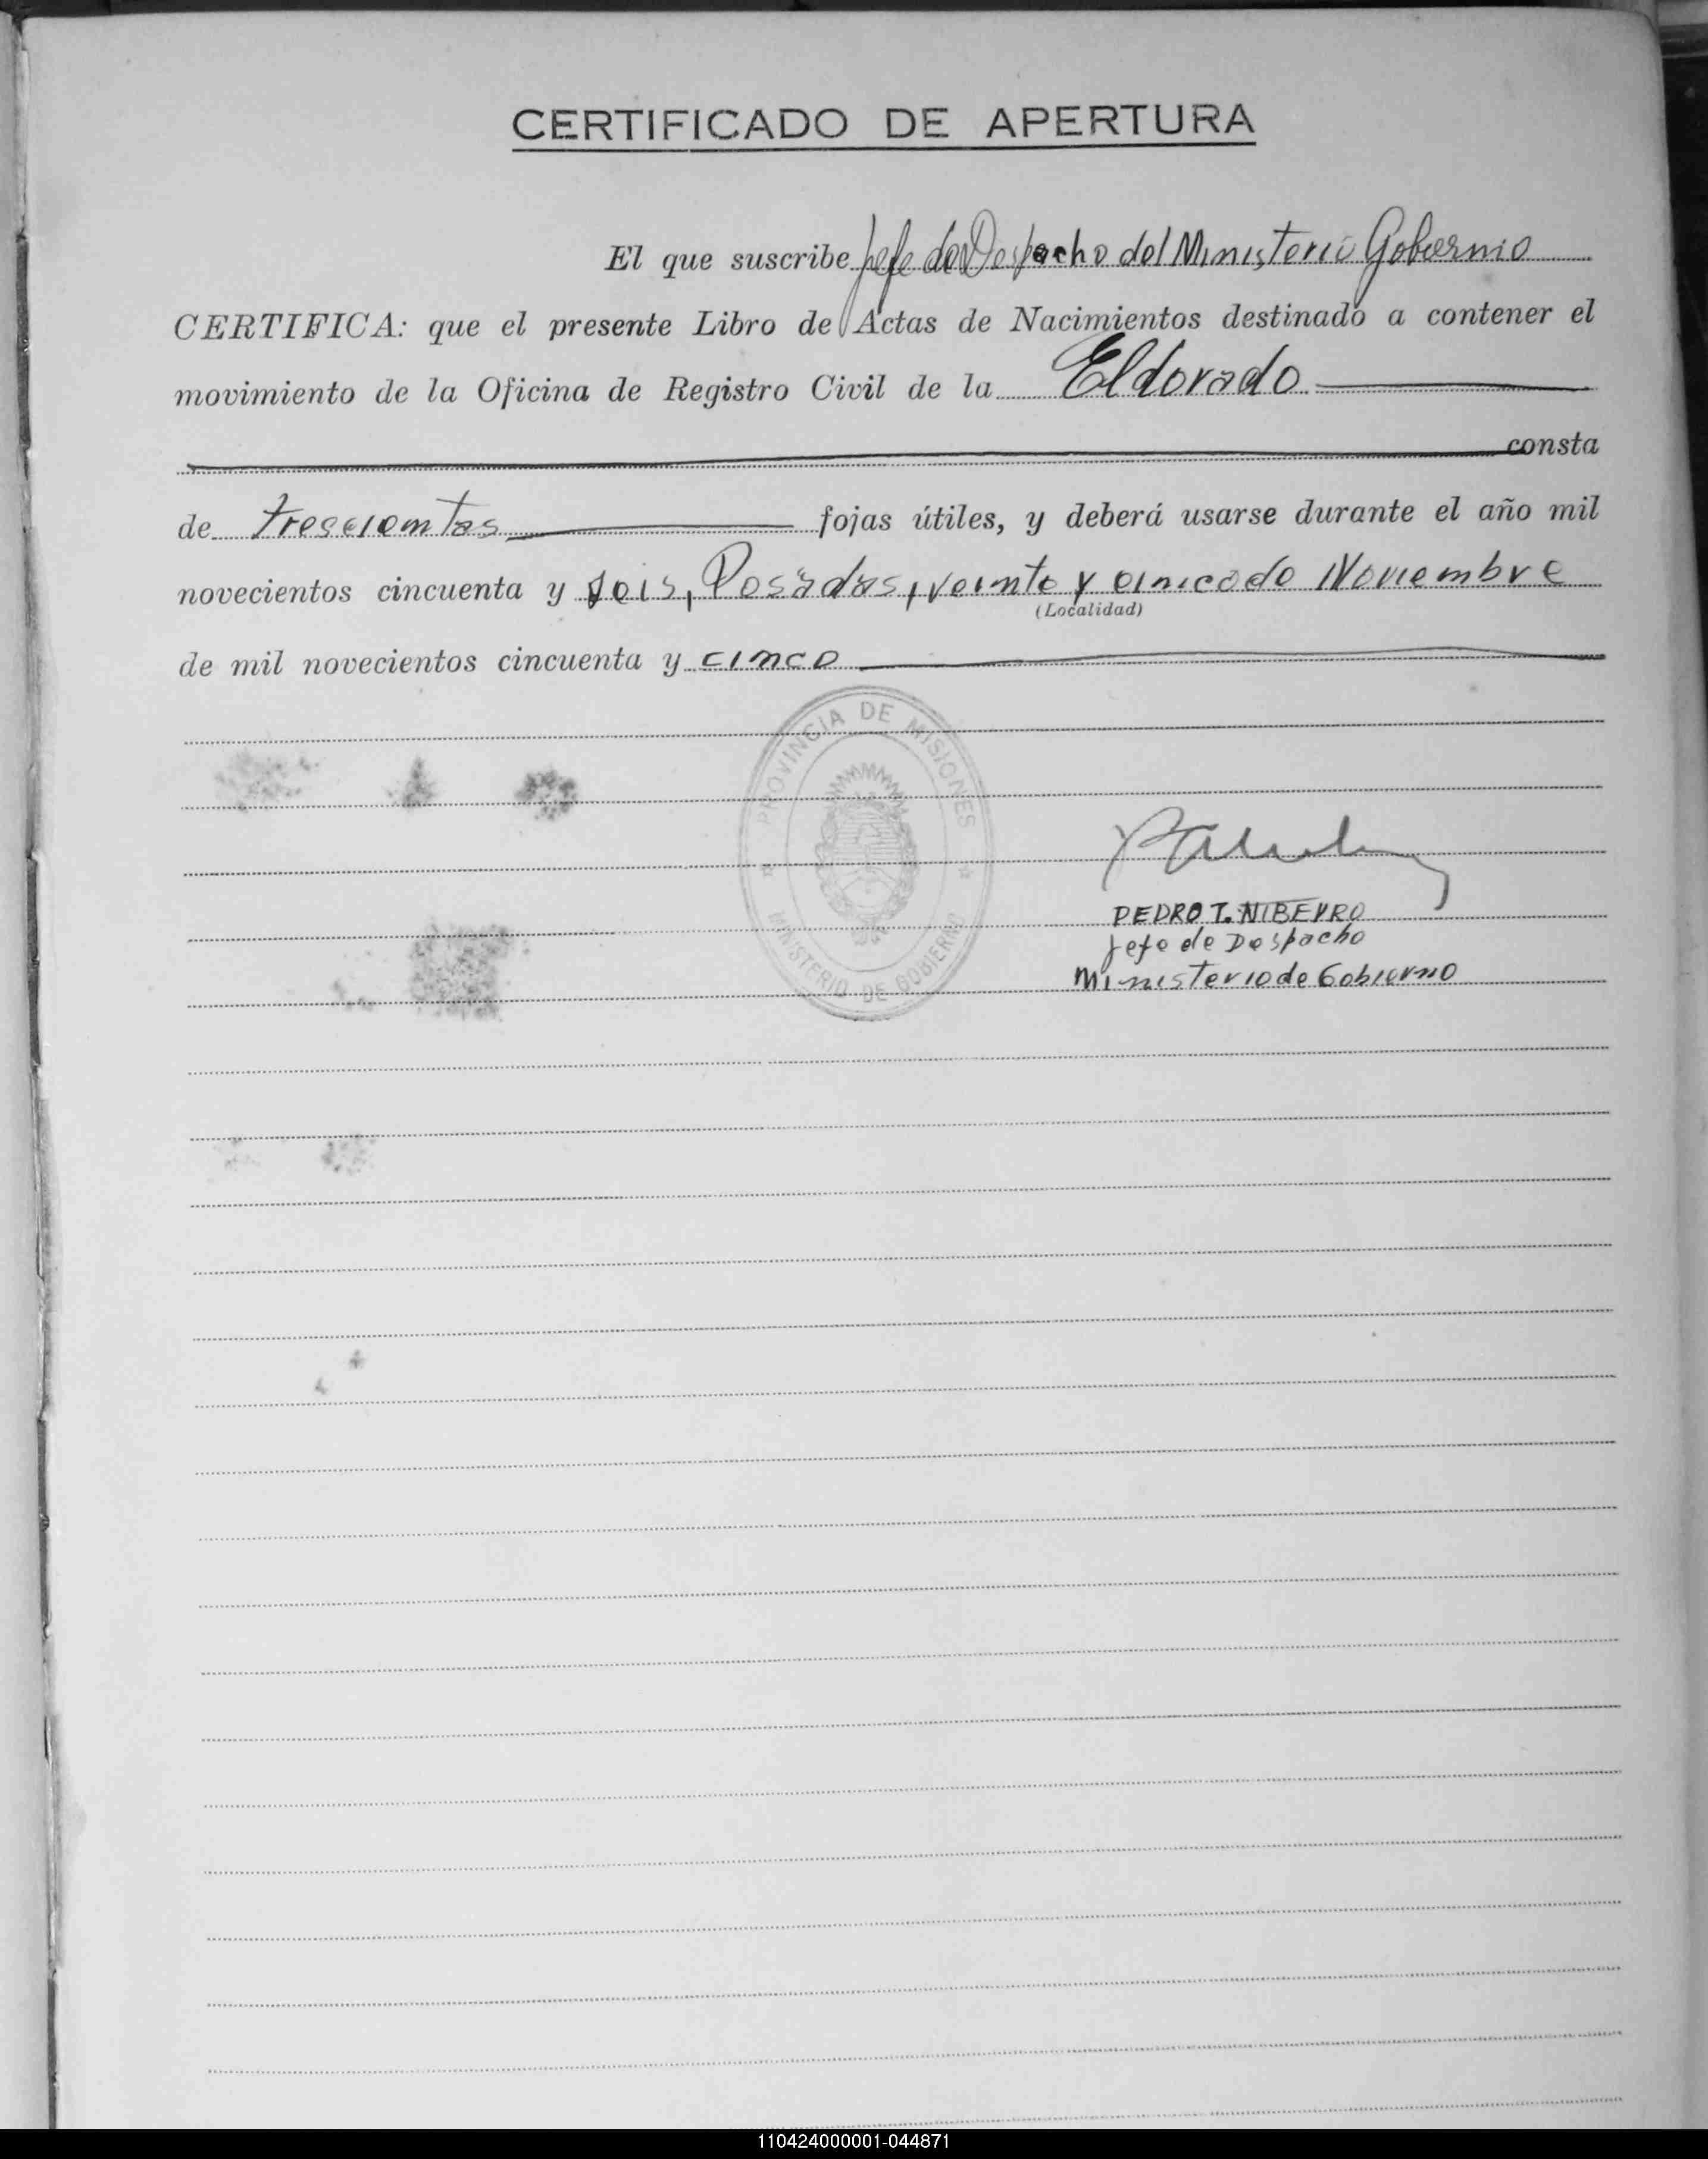 CERTIFICADO DE APERTURA
El que suscribe Jefe de Despacho del Ministerio Gobierno
CERTIFICA: que el presente Libro de Actas de Nacimientos destinado a contener el
movimiento de la Oficina de Registro Civil de la Eldorado
consta
de trescientas fojas útiles, y deberá usarse durante el año mil
novecientos cincuenta y seis, Posadas, veinte y cinco de Noviembre
(Localidad)
de mil novecientos cincuenta y cinco
PROVINCIA DE MISIONES
MINISTERIO DE GOBIERNO
PEDRO T. NIBEYRO
Jefe de Despacho
Ministerio de Gobierno
110424000001-044871